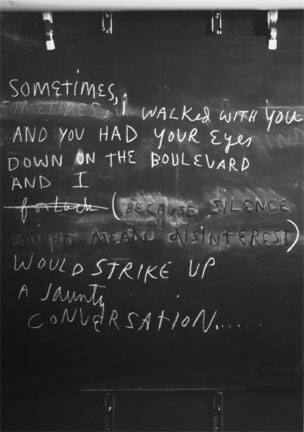 SOMETIMES,
SOMETIMES, I WALKED WITH YOU
AND YOU HAD YOUR EYES
DOWN ON THE BOULEVARD
AND I
(BECAUSE SILENCE
MIGHT MEAN DISINTEREST)
WOULD STRIKE UP
A JAUNTY
CONVERSATION......